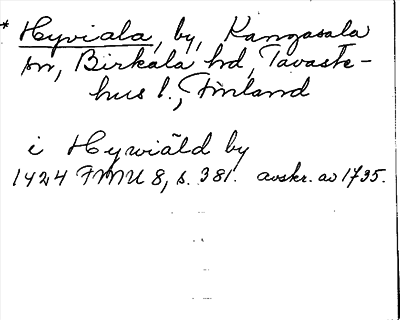 * Hyviala, by, Kangasala
sn, Birkala hd, Tavaste-
hus l., Finland
i Hywiäld by
1424 FMU 8, s. 381. avskr. av 1735.